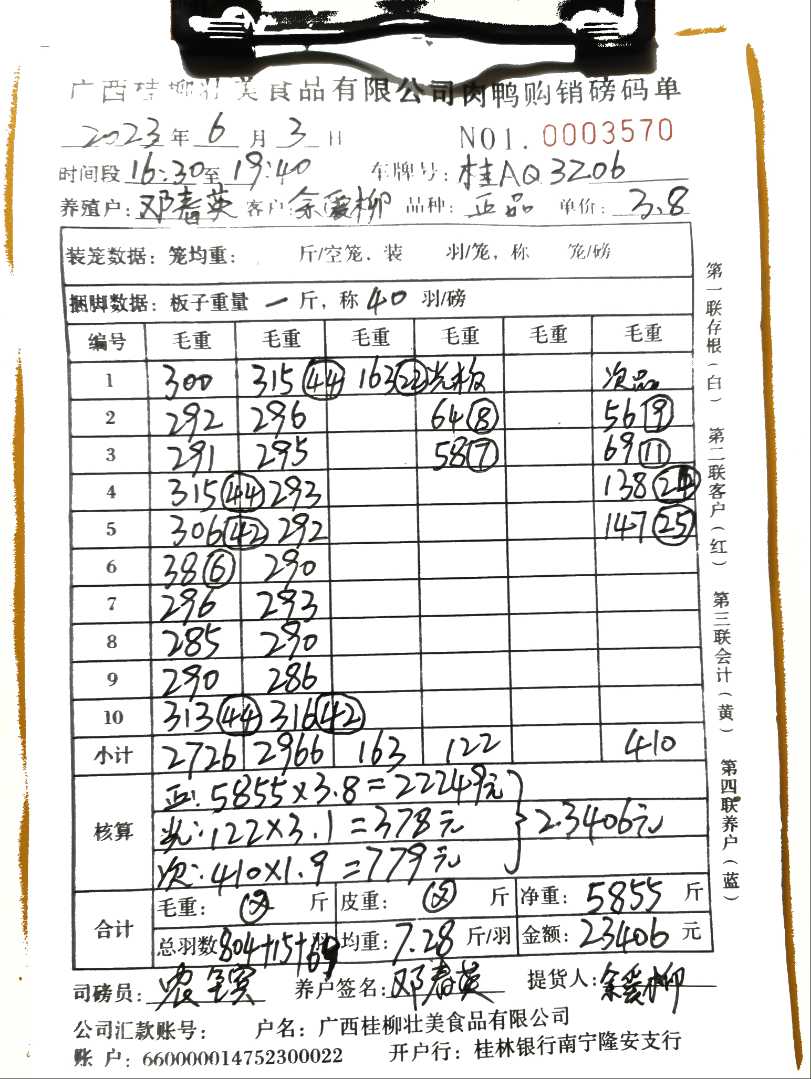 广西桂柳壮美食品有限公司肉鸭购销磅码单
2023年6月3日 NO1.0003570
时间段16:30至19:40 车牌号:桂AQ3206
养殖户:邓春英 客户:余爱柳 品种:正品 单价:3.8
装笼数据:笼均重: 斤/空笼.装 羽/笼,称 笼/磅
捆脚数据:板子重量一斤,称40羽/磅
编号 毛重 毛重 毛重 毛重 毛重 毛重
1 300 315(44) 163(22) 光板 次品
2 292 296 64(8) 56(9)
3 291 295 58(7) 69(11)
4 315(44) 293 138(24)
5 306(42) 292 147(25)
6 38(6) 290
7 296 293
8 285 290
9 290 286
10 313(44) 316(42)
小计 2726 2966 163 122 410
核算
正:5855×3.8=22249元
光:122×3.1=378元
次:410×1.9=779元
23406元
合计
毛重: 斤 皮重: 斤 净重:5855斤
总羽数804+15+69羽 均重:7.28斤/羽 金额:23406元
司磅员: 养户签名:邓春英 提货人:余爱柳
公司汇款账号: 户名:广西桂柳壮美食品有限公司
账户:660000014752300022 开户行:桂林银行南宁隆安支行
第一联存根(白) 第二联客户(红) 第三联会计(黄) 第四联养户(蓝)